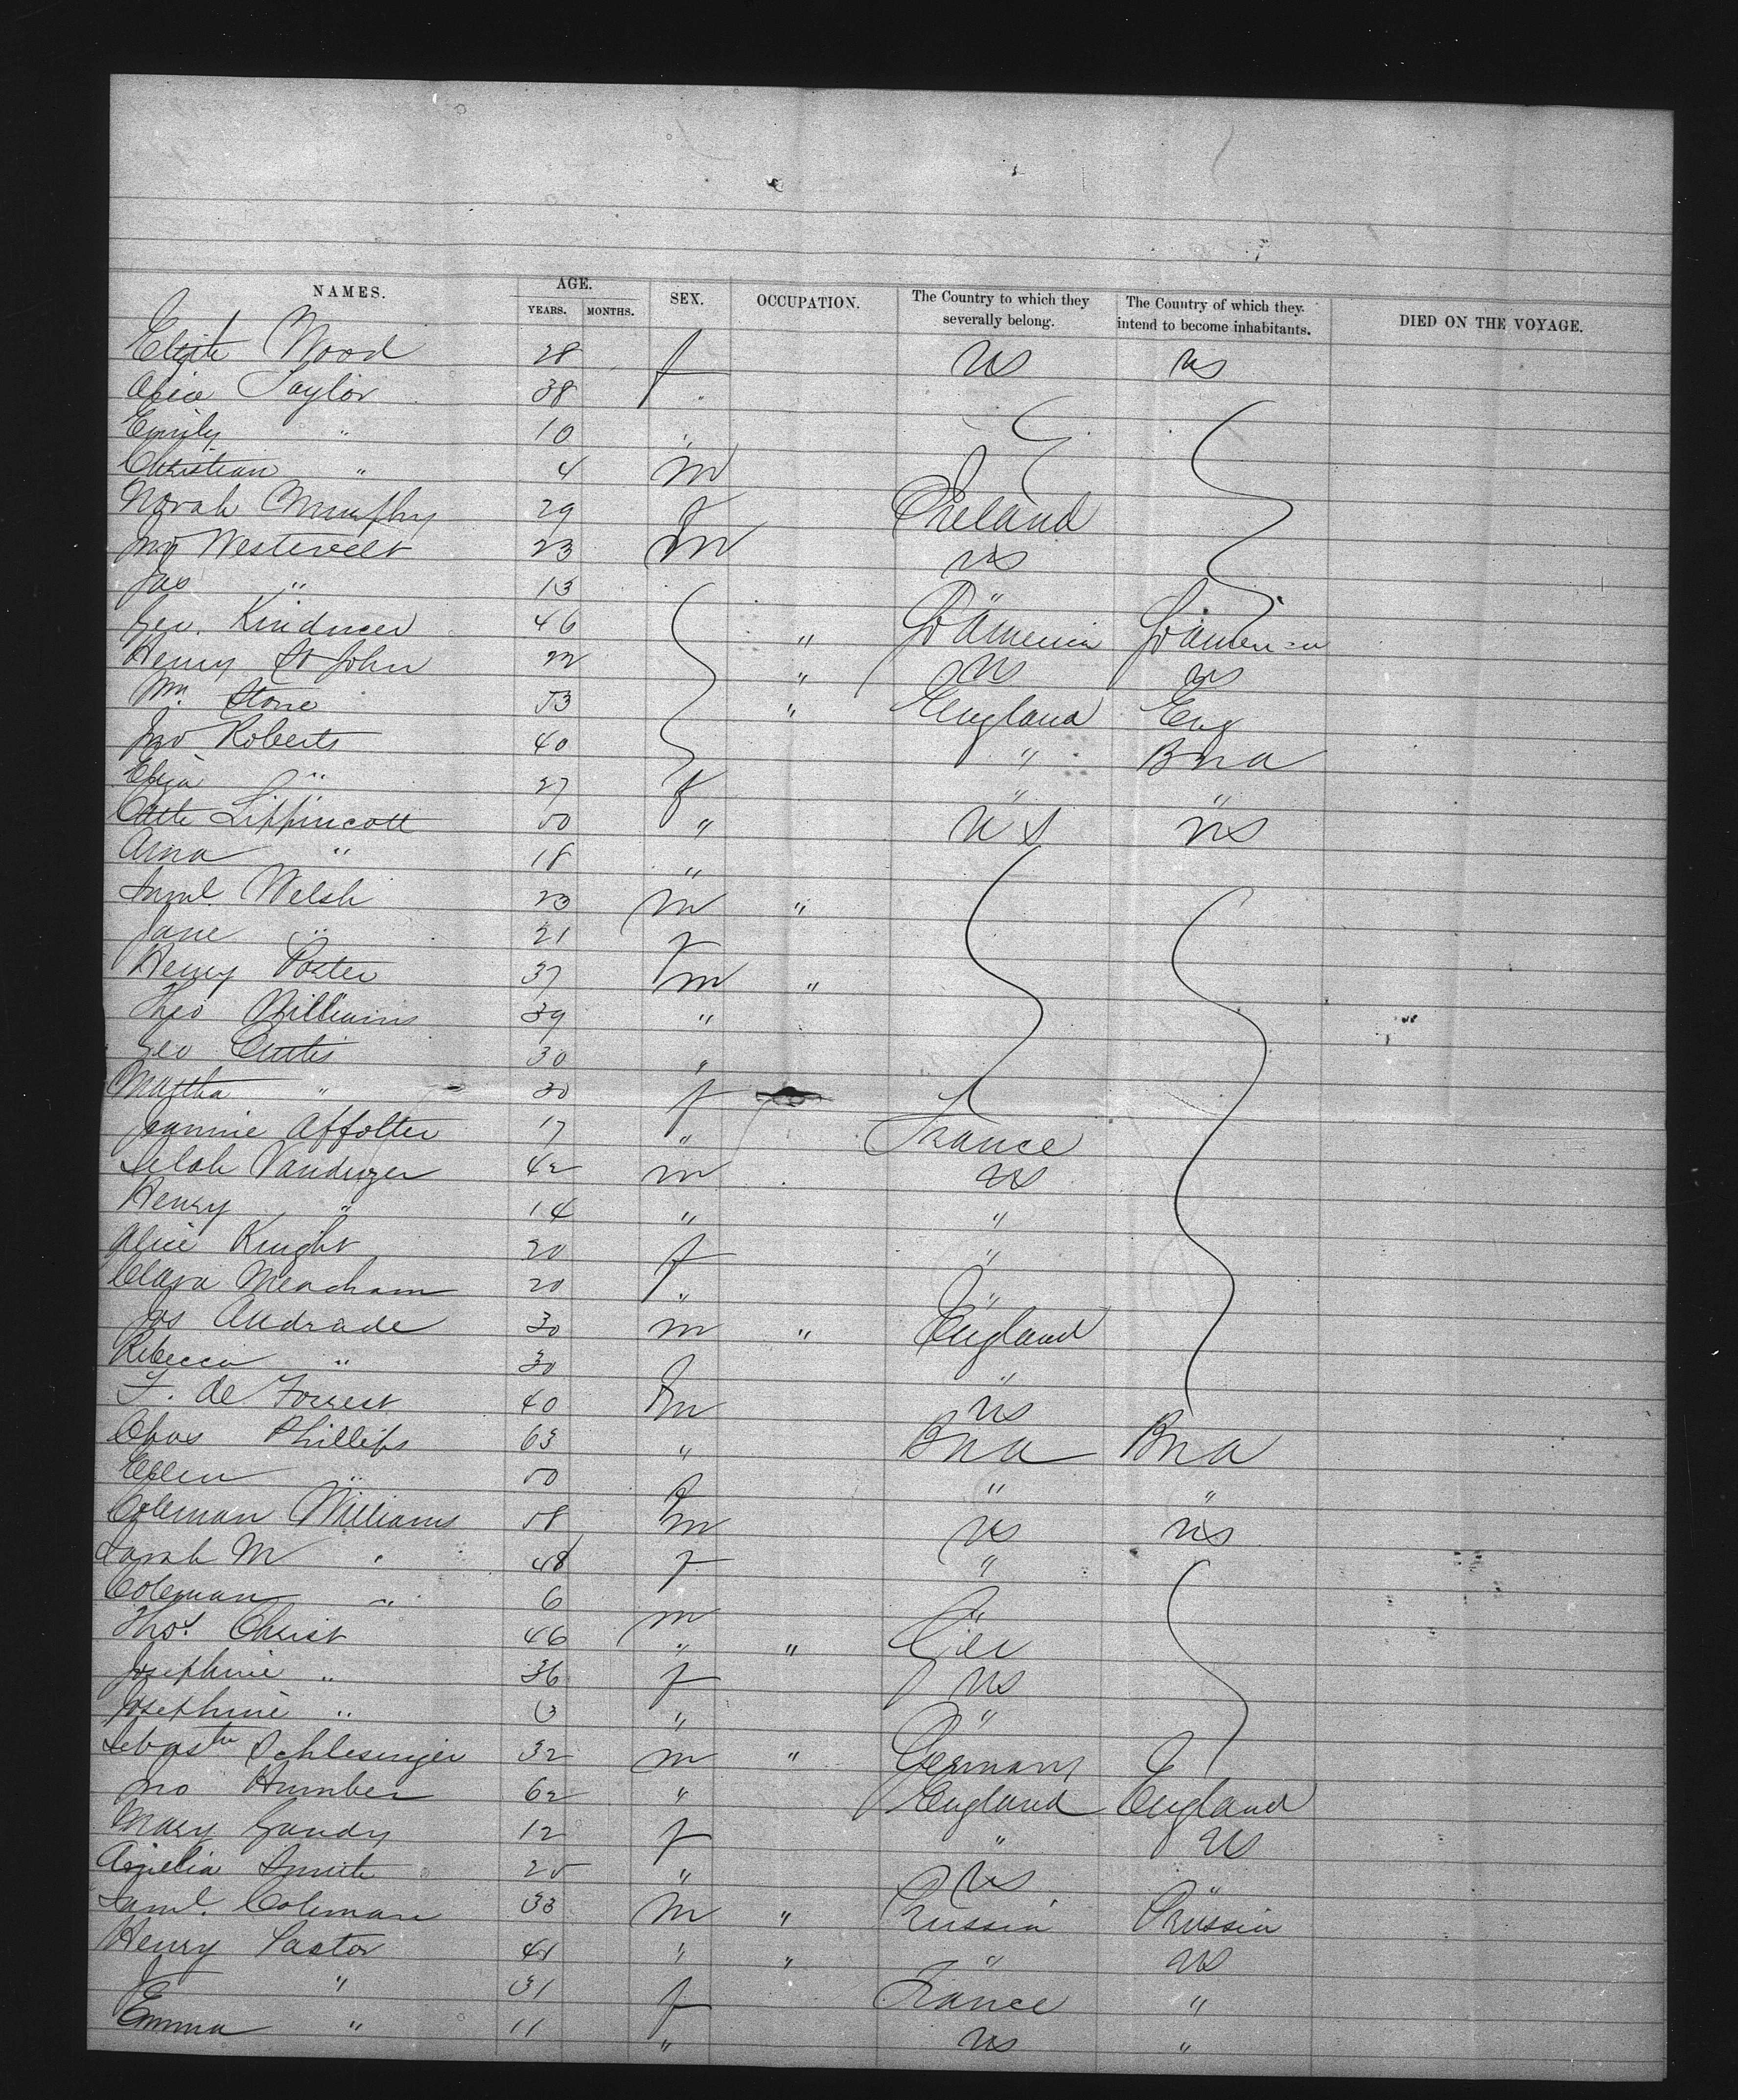 NAMES. AGE. SEX. OCCUPATION. The Country to which they severally belong. The Country of which they intend to become inhabitants. DIED ON THE VOYAGE.
YEARS. MONTHS.
Wood 28 f US US
Alice Taylor 38 "
Emily " 10 "
Christian " 4 m
Norah Murphy 29 f Ireland
Jno Westervelt 23 m US
Jas " 13 "
Geo. 46 " So America So America
Henry St John 22 " US US
Wm. Stone 53 " England Eng
Jno Roberts 40 " B n a
Eliza " 27 f " "
Lippincott 50 " US US
Anna " 18 "
Saml. Welsh 23 m "
Jane " 21 f
Henry Porter 37 m "
Theo Williams 39 "
Geo Curtis 30 "
Martha " 30 f
Jeannie Affolter 17 " France
Selah Vanduzer 42 m US
Henry " 14 " "
Alice Knight 20 f "
Clara Meacham 20 " "
Jos Andrade 30 m " England
Rebecca " 30 f "
F. de Forrest 40 m US
Chas Phillips 63 " B n a B n a
Ellen " 50 f " "
Coleman Williams 58 m US US
Sarah M " 48 f "
Coleman " 6 m "
Thos. Christ 46 " " Ger
Josephine " 36 f US
Josephine " 13 " "
Sebastn Schlesinger 32 m " Germany
Jno Humber 62 " England England
Mary Gandy 12 f " US
Amelia Smith 25 " US "
Saml. Coleman 33 m " Prussia Prussia
Henry Pastor 41 " " " US
J " 31 f France "
Emma " 11 " US "